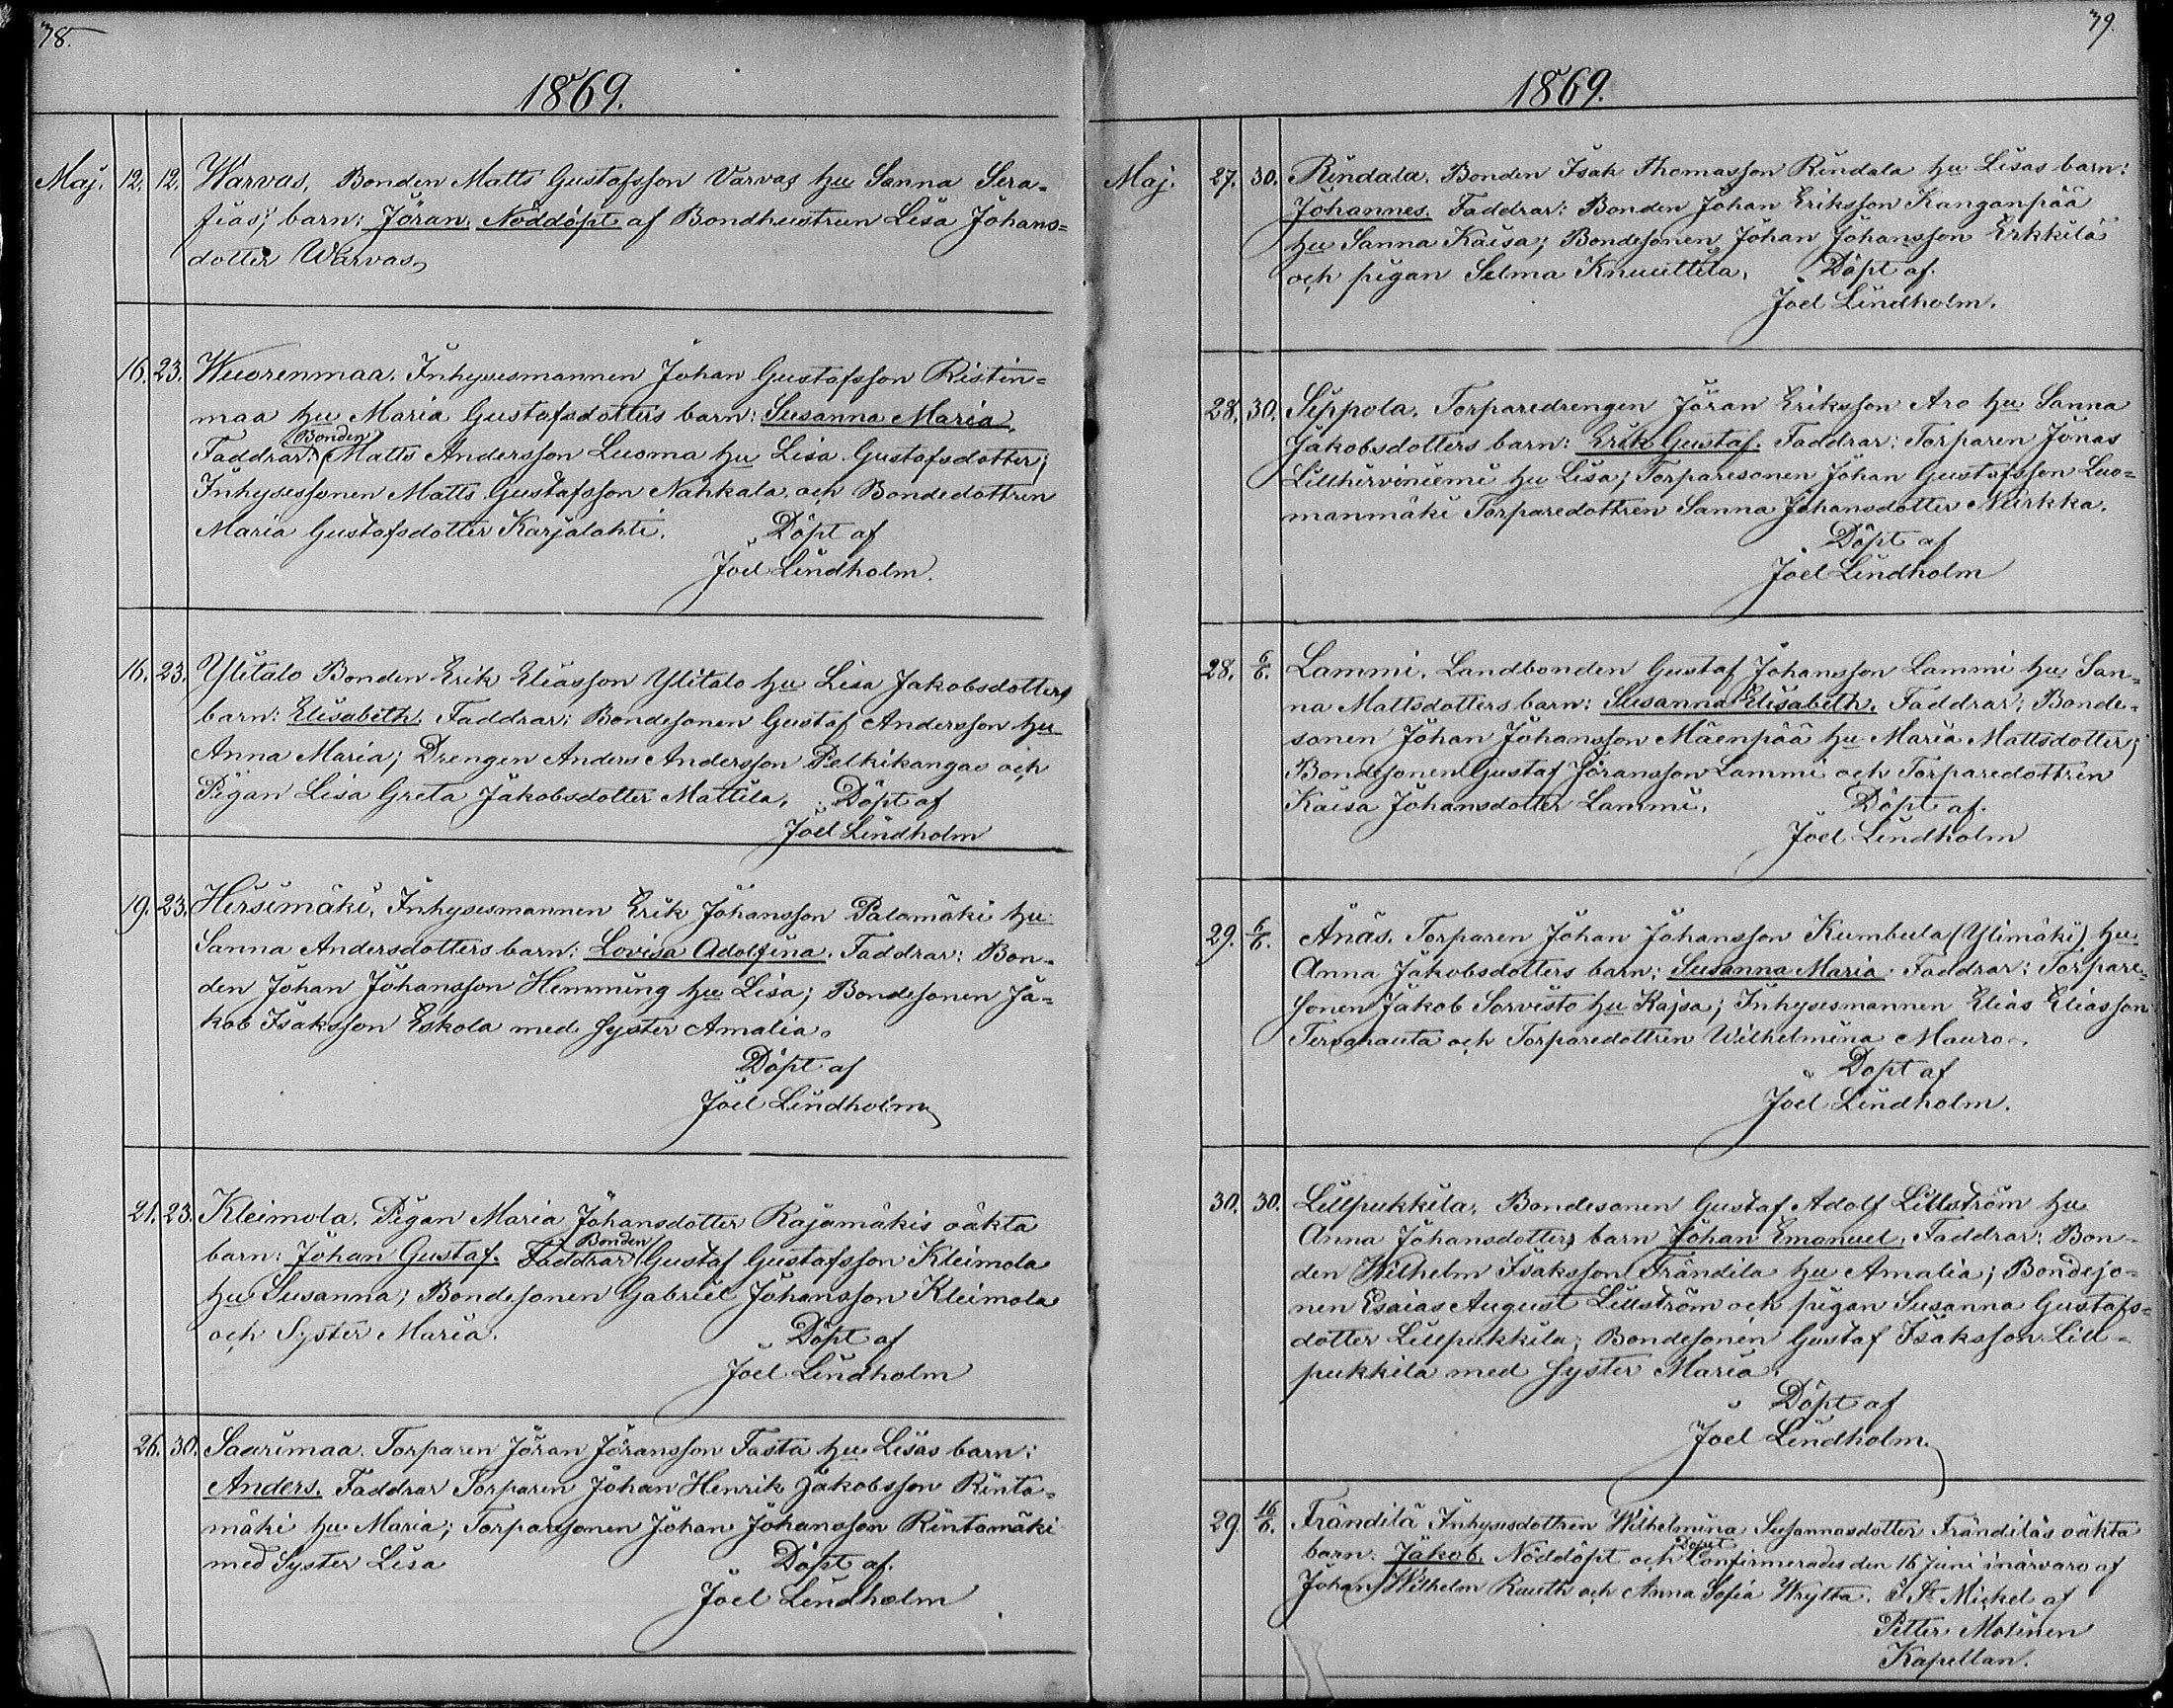 78.
1869.
Maj. 12. 12. Warvas, Bonden Matts Gustafsson Varvas hu Sanna Sera-
fias, barn: Jöran. Nöddöpt af Bondhustrun Lisa Johans-
dotter Warvas,
16. 23. Wuorenmaa. Inhysesmannen Johan Gustafsson Ristin-
maa hu Maria Gustafsdotters barn: Susanna Maria.
Bonden
Faddrar: Matts Andersson Luoma hu Lisa Gustafsdotter;
Inhysessonen Matts Gustafsson Nahkala och Bondedottren
Maria Gustafsdotter Karjalahti. Döpt af
Joel Lindholm.
16. 23. Ylitalo Bonden Erik Eliasson Ylitalo hu Lisa Jakobsdotters
barn: Elisabeth. Faddrar: Bondesonen Gustaf Andersson hu
Anna Maria; Drengen Anders Andersson Pelkikangas och
Pigan Lisa Greta Jakobsdotter Mattila. Döpt af
Joel Lindholm
19. 23. Hirsimäki, Inhysesmannen Erik Johansson Palomäki hu
Sanna Andersdotters barn: Lovisa Adolfina. Faddrar: Bon-
den Johan Johansson Hemming hu Lisa; Bondesonen Ja-
kob Isaksson Eskola med Syster Amalia.
Döpt af
Joel Lindholm
21. 23. Kleimola. Pigan Maria Johansdotter Rajamäkis oäkta
Bonden
barn: Johan Gustaf. Faddrar Gustaf Gustafsson Kleimola
hu Susanna; Bondesonen Gabriel Johansson Kleimola
och Syster Maria. Döpt af
Joel Lindholm
26. 30. Saarimaa. Torparen Jöran Jöransson Tasta hu Lisas barn:
Anders. Faddrar Torparen Johan Henrik Jakobsson Rinta-
mäki hu Maria; Torparesonen Johan Johansson Rintamäki
med Syster Lisa Döpt af.
Joel Lindholm
79.
1869.
Maj. 27. 30. Rindala. Bonden Isak Thomasson Rindala hu Lisas barn:
Johannes. Faddrar: Bonden Johan Eriksson Kanganpää
hu Sanna Kaisa; Bondesonen Johan Johansson Erkkilä
och pigan Selma Knuuttila. Döpt af.
Joel Lindholm.
28. 30. Seppola. Torparedrengen Jöran Eriksson Aro hu Sanna
Jakobsdotters barn: Erik Gustaf. Faddrar: Torparen Jonas
Lillhirviniemi hu Lisa; Torparesonen Johan Gustafsson Luo-
manmäki Torparedottren Sanna Johansdotter Niirkka.
Döpt af
Joel Lindholm
28. 6/6. Lammi. Landbonden Gustaf Johansson Lammi hu San-
na Mattsdotters barn: Susanna Elisabeth. Faddrar: Bonde-
sonen Johan Johansson Mäenpää hu Maria Mattsdotter;
Bondesonen Gustaf Jöransson Lammi och Torparedottren
Kaisa Johansdotter Lammi. Döpt af.
Joel Lindholm
29. 6/6. Ånäs. Torparen Johan Johansson Kumbula (Ylimäki) hu
Anna Jakobsdotters barn: Susanna Maria. Faddrar: Torpare-
sonen Jakob Sorvisto hu Kajsa; Inhysesmannen Elias Eliasson
Tervahauta och Torparedottren Wilhelmina Mauro.
Döpt af
Joel Lindholm.
30. 30. Lillpukkila. Bondesonen Gustaf Adolf Lillström hu
Anna Johansdotters barn Johan Emanuel. Faddrar: Bon-
den Wilhelm Isaksson Frändilä hu Amalia; Bondeso-
nen Esaias August Lillström och pigan Susanna Gustafs-
dotter Lillpukkila; Bondesonen Gustaf Isaksson Lill-
pukkila med Syster Maria.
Döpt af
Joel Lindholm.
29. 16/6. Frändilä Inhysesdottren Wilhelmina Susannasdotter Frändiläs oäkta
barn: Jakob. Nöddöpt och Confirmerades den 16 Juni i närvaro af
Johan Wilhelm Ruuth och Anna Sofia Wrytta. i St Mickel af
Petter Molinen
Kapellan.